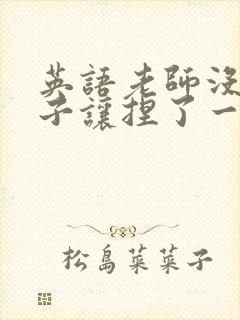 英語老師沒
子讓捏了一
松島菜菜子